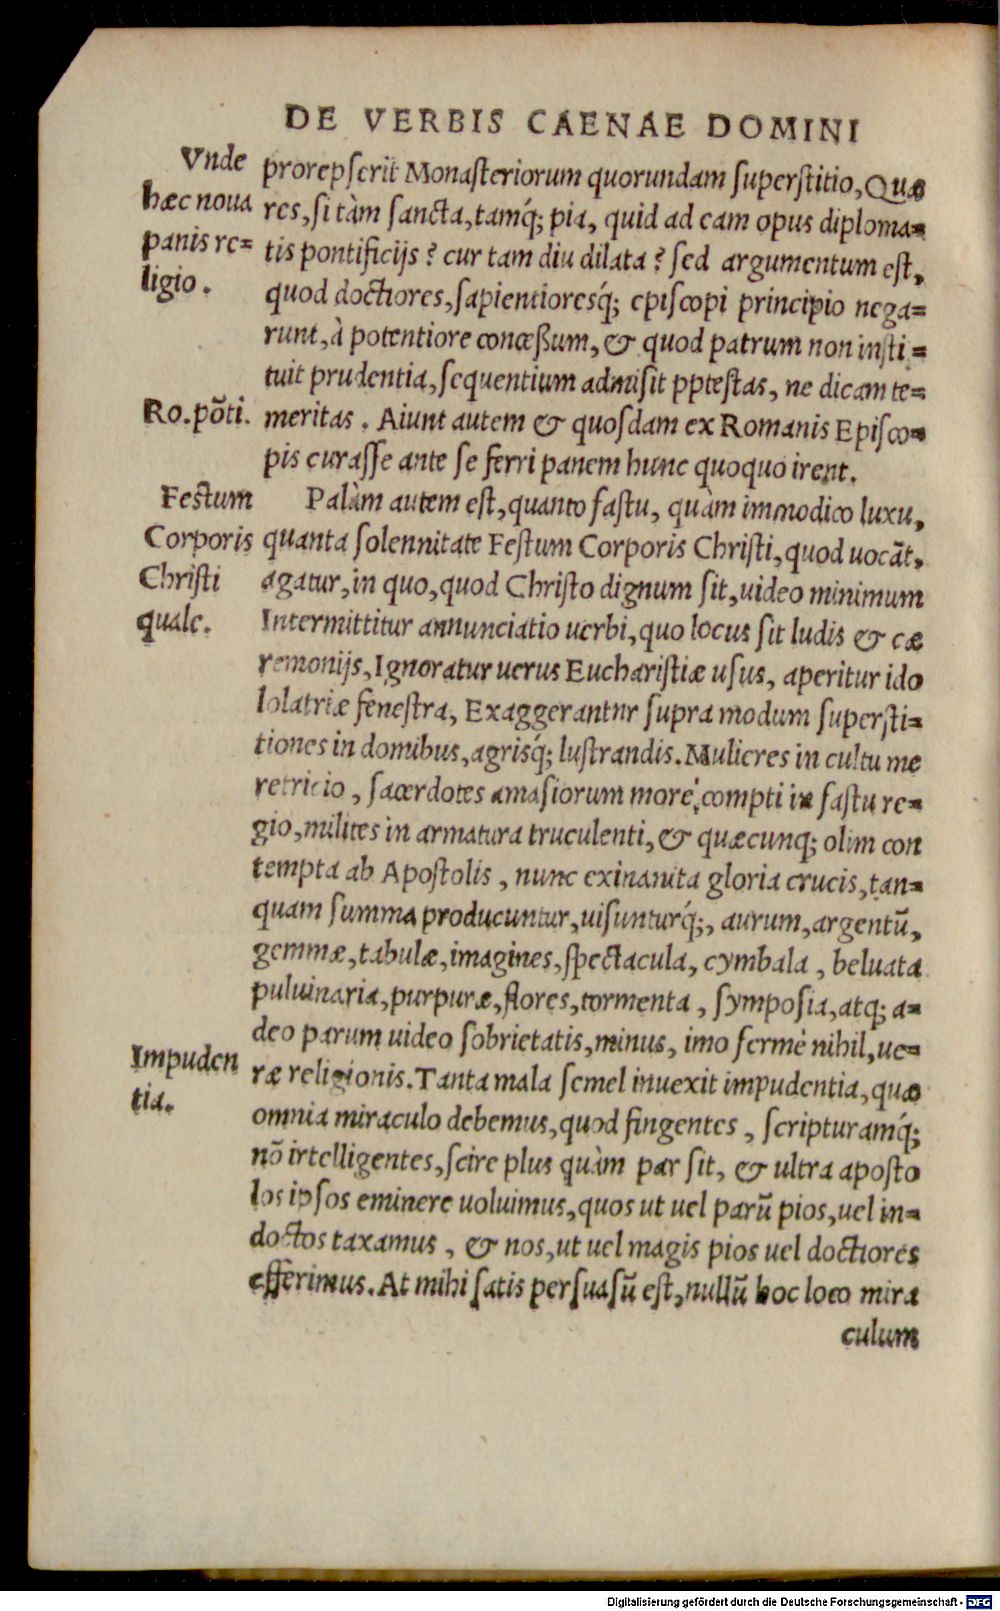 DE VERBIS CAENAE DOMINI
Vnde
hæc noua
panis re=
ligio.
prorepserit Monasteriorum quorundam superstitio, Quæ
res, si tàm sancta, tamq́; pia, quid ad eam opus diploma=
tis pontificijs? cur tam diu dilata? sed argumentum est,
quod doctiores, sapientioresq́; episcopi principio nega=
runt, à potentiore conceßum, & quod patrum non insti=
tuit prudentia, sequentium admisit pptestas, ne dicam te=
Ro. põti.
meritas. Aiunt autem & quosdam ex Romanis Episco=
pis curasse ante se ferri panem hunc quoquo irent.
Festum
Corporis
Christi
quale.
Palàm autem est, quanto fastu, quàm immodico luxu,
quanta solennitate Festum Corporis Christi, quod uocãt,
agatur, in quo, quod Christo dignum sit, uideo minimum
Intermittitur annunciatio uerbi, quo locus sit ludis & cæ
remonijs, Ignoratur uerus Eucharistiæ usus, aperitur ido
lolatriæ fenestra, Exaggerantnr supra modum supersti=
tiones in domibus, agrisq́; lustrandis. Mulieres in cultu me
retricio, sacerdotes amasiorum more, compti in fastu re=
gio, milites in armatura truculenti, & quæcunq; olim con
tempta ab Apostolis, nunc exinanita gloria crucis, tan=
quam summa producuntur, uisunturq́;, aurum, argentũ,
gemmæ, tabulæ, imagines, spectacula, cymbala, beluata
puluinaria, purpuræ, flores, tormenta, symposia, atq; a=
deo parum uideo sobrietatis, minus, imo fermè nihil, ue=
Impuden
tia.
ræ religionis. Tanta mala semel inuexit impudentia, quæ
omnia miraculo debemus, quod fingentes, scripturamq́;
nõ irtelligentes, scire plus quàm par sit, & ultra aposto
los ipsos eminere uoluimus, quos ut uel parũ pios, uel in=
doctos taxamus, & nos, ut uel magis pios uel doctiores
efferimus. At mihi satis persuasũ est, nullũ hoc loco mira
culum
Digitalisierung gefördert durch die Deutsche Forschungsgemeinschaft - DFG